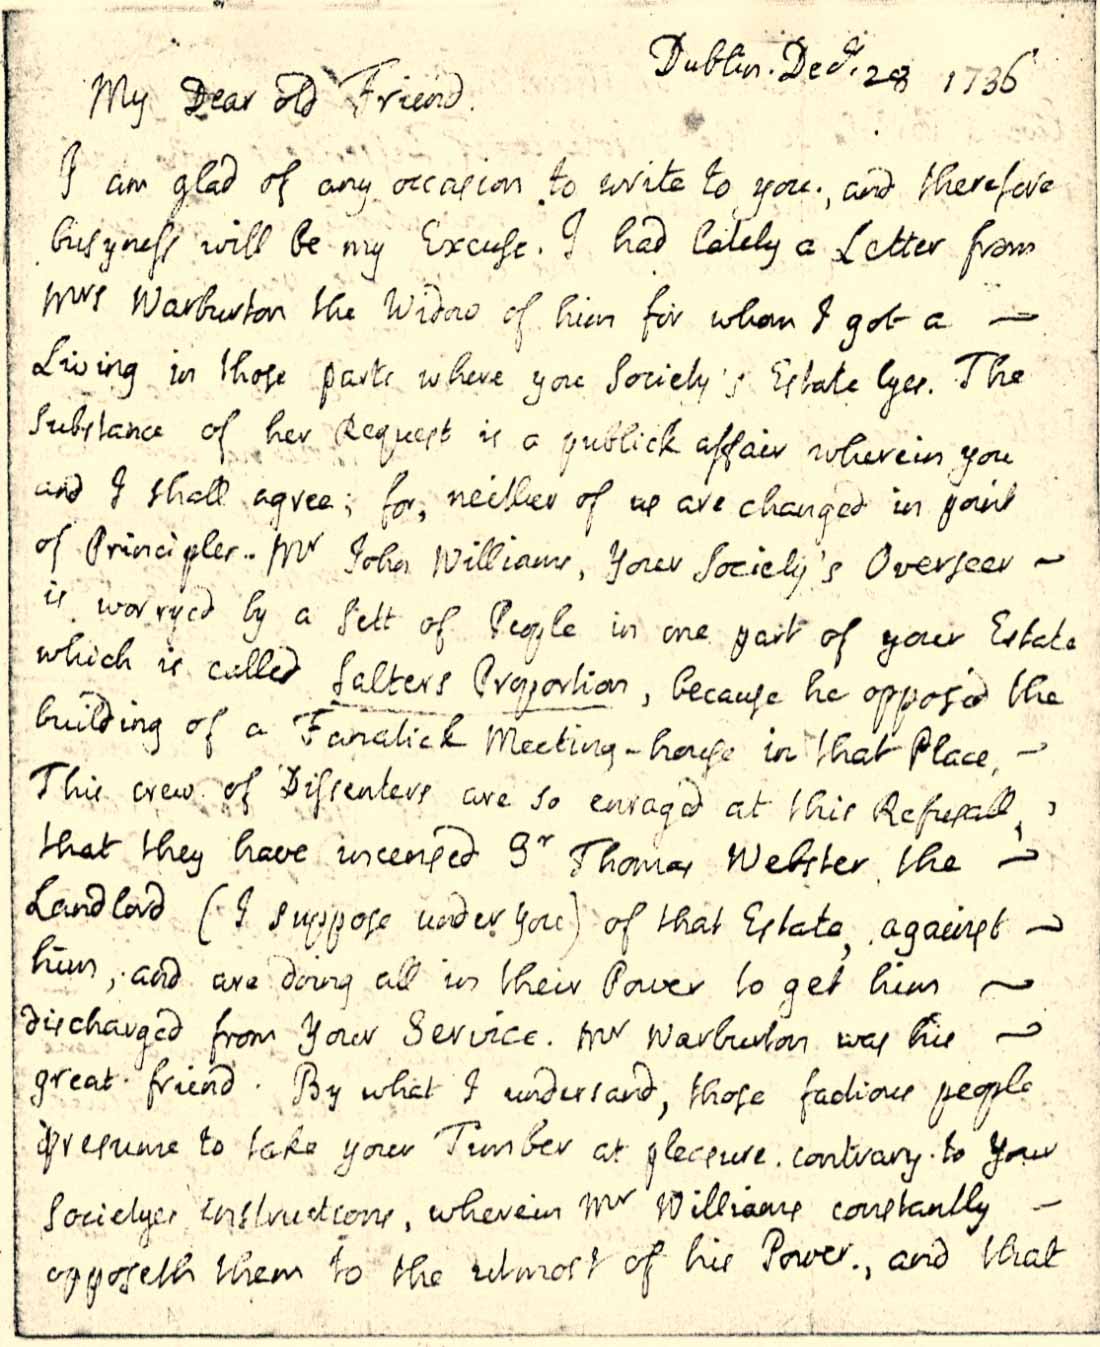 Dublin. Decr. 28 1736
My Dear old Friend.
I am glad of any occasion to write to you, and therefore
busyness will be my Excuse. I had lately a Letter from
Mrs Warburton the Widow of him for whom I got a —
Living in those parts where you Society's Estate lyes. The
Substance of her Request is a publick affair wherein you
and I shall agree; for, neither of us are changed in point
of Principles. Mr John Williams, Your Society's Overseer —
is worryed by a Sett of People in one part of your Estate
which is called Salters Proportion, because he opposed the
building of a Fanatick Meeting-house in that Place, —
This crew of Dissenters are so enraged at this Refusall,
that they have incensed Sr Thomas Webster the —
Landlord (I suppose under You) of that Estate, against —
him, and are doing all in their Power to get him —
discharged from Your Service. Mr Warburton was his —
great friend. By what I undersand, those factious people
presume to take your Timber at pleasure. contrary to Your
Societyes instructions, wherein Mr Williams constantly —
opposeth them to the utmost of his Power., and that